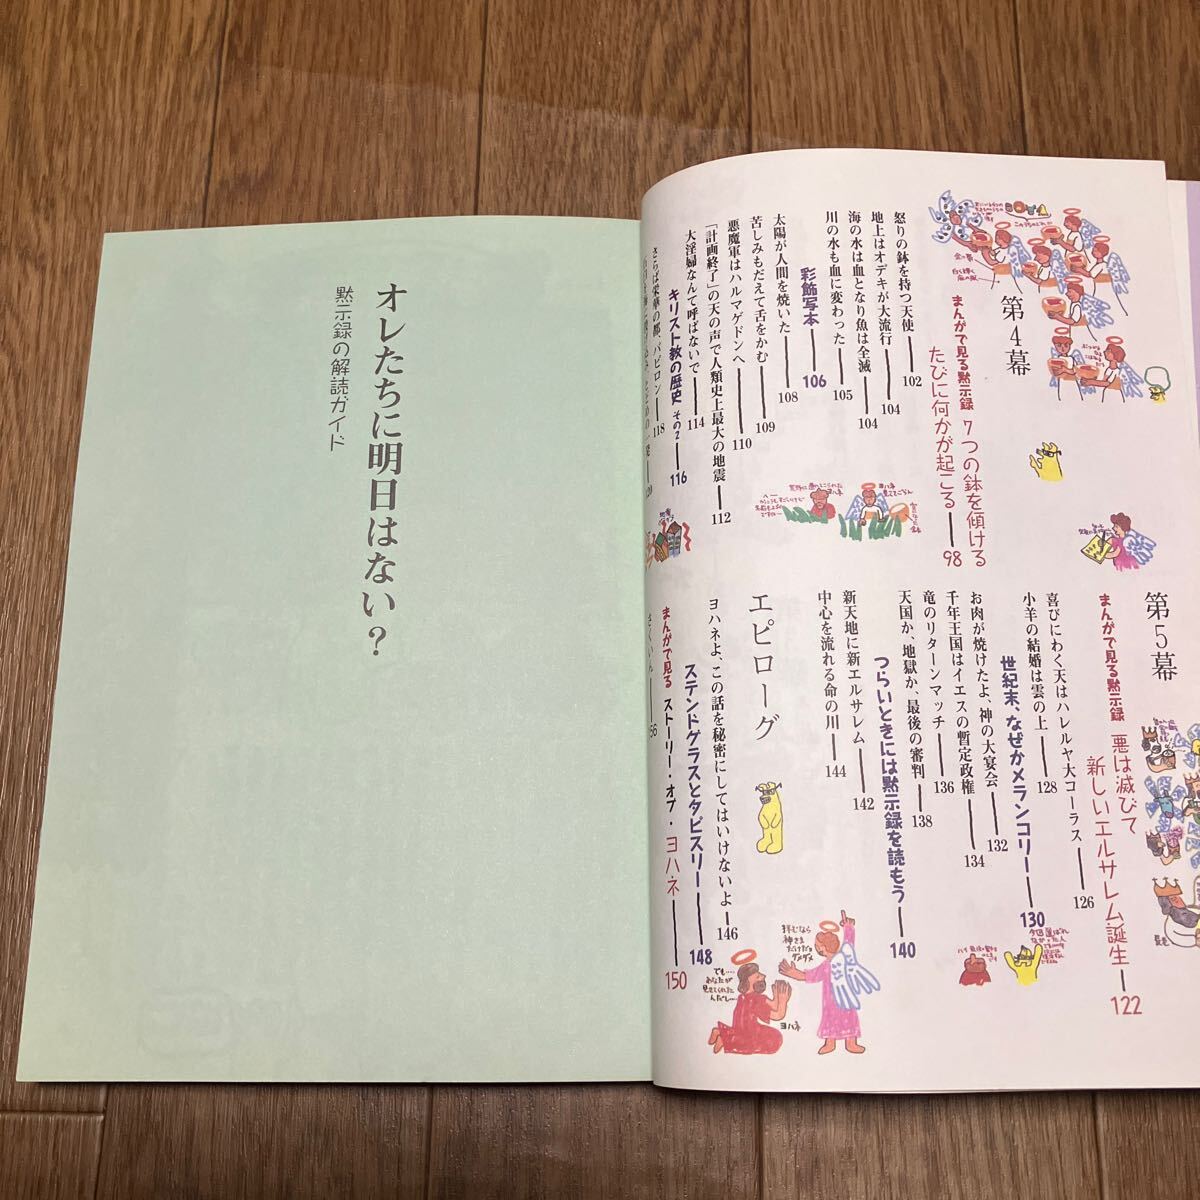 第4幕
まんがで見る黙示録 7つの鉢を傾ける
たびに何かが起こる 98
怒りの鉢を持つ天使 102
地上はオデキが大流行 104
海の水は血となり魚は全滅 104
川の水も血に変わった 105
彩飾写本 106
太陽が人間を焼いた 108
苦しみもだえて舌をかむ 109
悪魔軍はハルマゲドンへ 110
「計画終了」の天の声で人類史上最大の地震 112
大淫婦なんて呼ばないで 114
キリスト教の歴史 その2 116
さらば栄華の都、バビロン 118
120
第5幕
まんがで見る黙示録 悪は滅びて
新しいエルサレム誕生 122
喜びにわく天はハレルヤ大コーラス 126
小羊の結婚は雲の上 128
世紀末、なぜかメランコリー 130
お肉が焼けたよ、神の大宴会 132
千年王国はイエスの暫定政権 134
竜のリターンマッチ 136
天国か、地獄か、最後の審判 138
つらいときには黙示録を読もう 140
新天地に新エルサレム 142
中心を流れる命の川 144
エピローグ
ヨハネよ、この話を秘密にしてはいけないよ 146
ステンドグラスとタピスリー 148
まんがで見る ストーリー・オブ・ヨハネ 150
さくいん 156
ヨハネ
拝むなら
神さま
だけだよ
ダメダメ
でも…
あなたが
見せてくれた
んだし…
オレたちに明日はない?
黙示録の解読ガイド